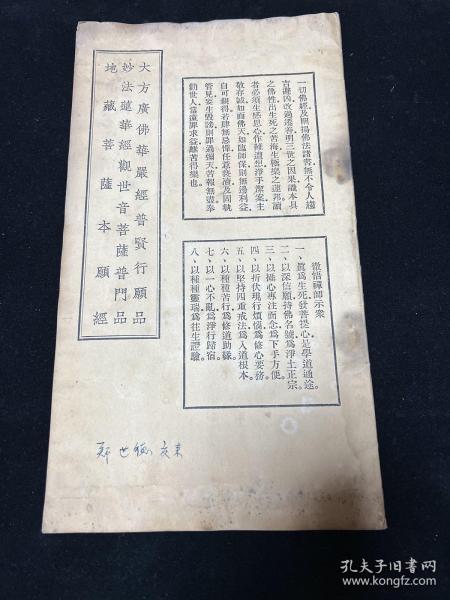 大方廣佛華嚴經普賢行願品
妙法蓮華經觀世音菩薩普門品
地藏菩薩本願經
一切佛經及闡揚佛法諸書無不令人趨
吉避凶改過遷善明三世之因果識本具
之佛性出生死之苦海生極樂之蓮邦讀
者必須生感恩心作難遭想淨手潔案主
敬存誠如面佛天如臨師保則無邊利益
自可親得若肆無忌憚任意褻瀆及固執
管見妄生毀謗則罪過彌天苦報無盡奉
勸世人當遠罪求益離苦得樂也
徹悟禪師示衆
一、眞爲生死發菩提心是學道通途。
二、以深信願持佛名號爲淨土正宗。
三、以攝心專注而念爲下手方便。
四、以折伏現行煩惱爲修心要務。
五、以堅持四重戒法爲入道根本。
六、以種種苦行爲修道助緣。
七、以一心不亂爲淨行歸宿。
八、以種種靈瑞爲往生證驗。
孔夫子旧书网
www.kongfz.com